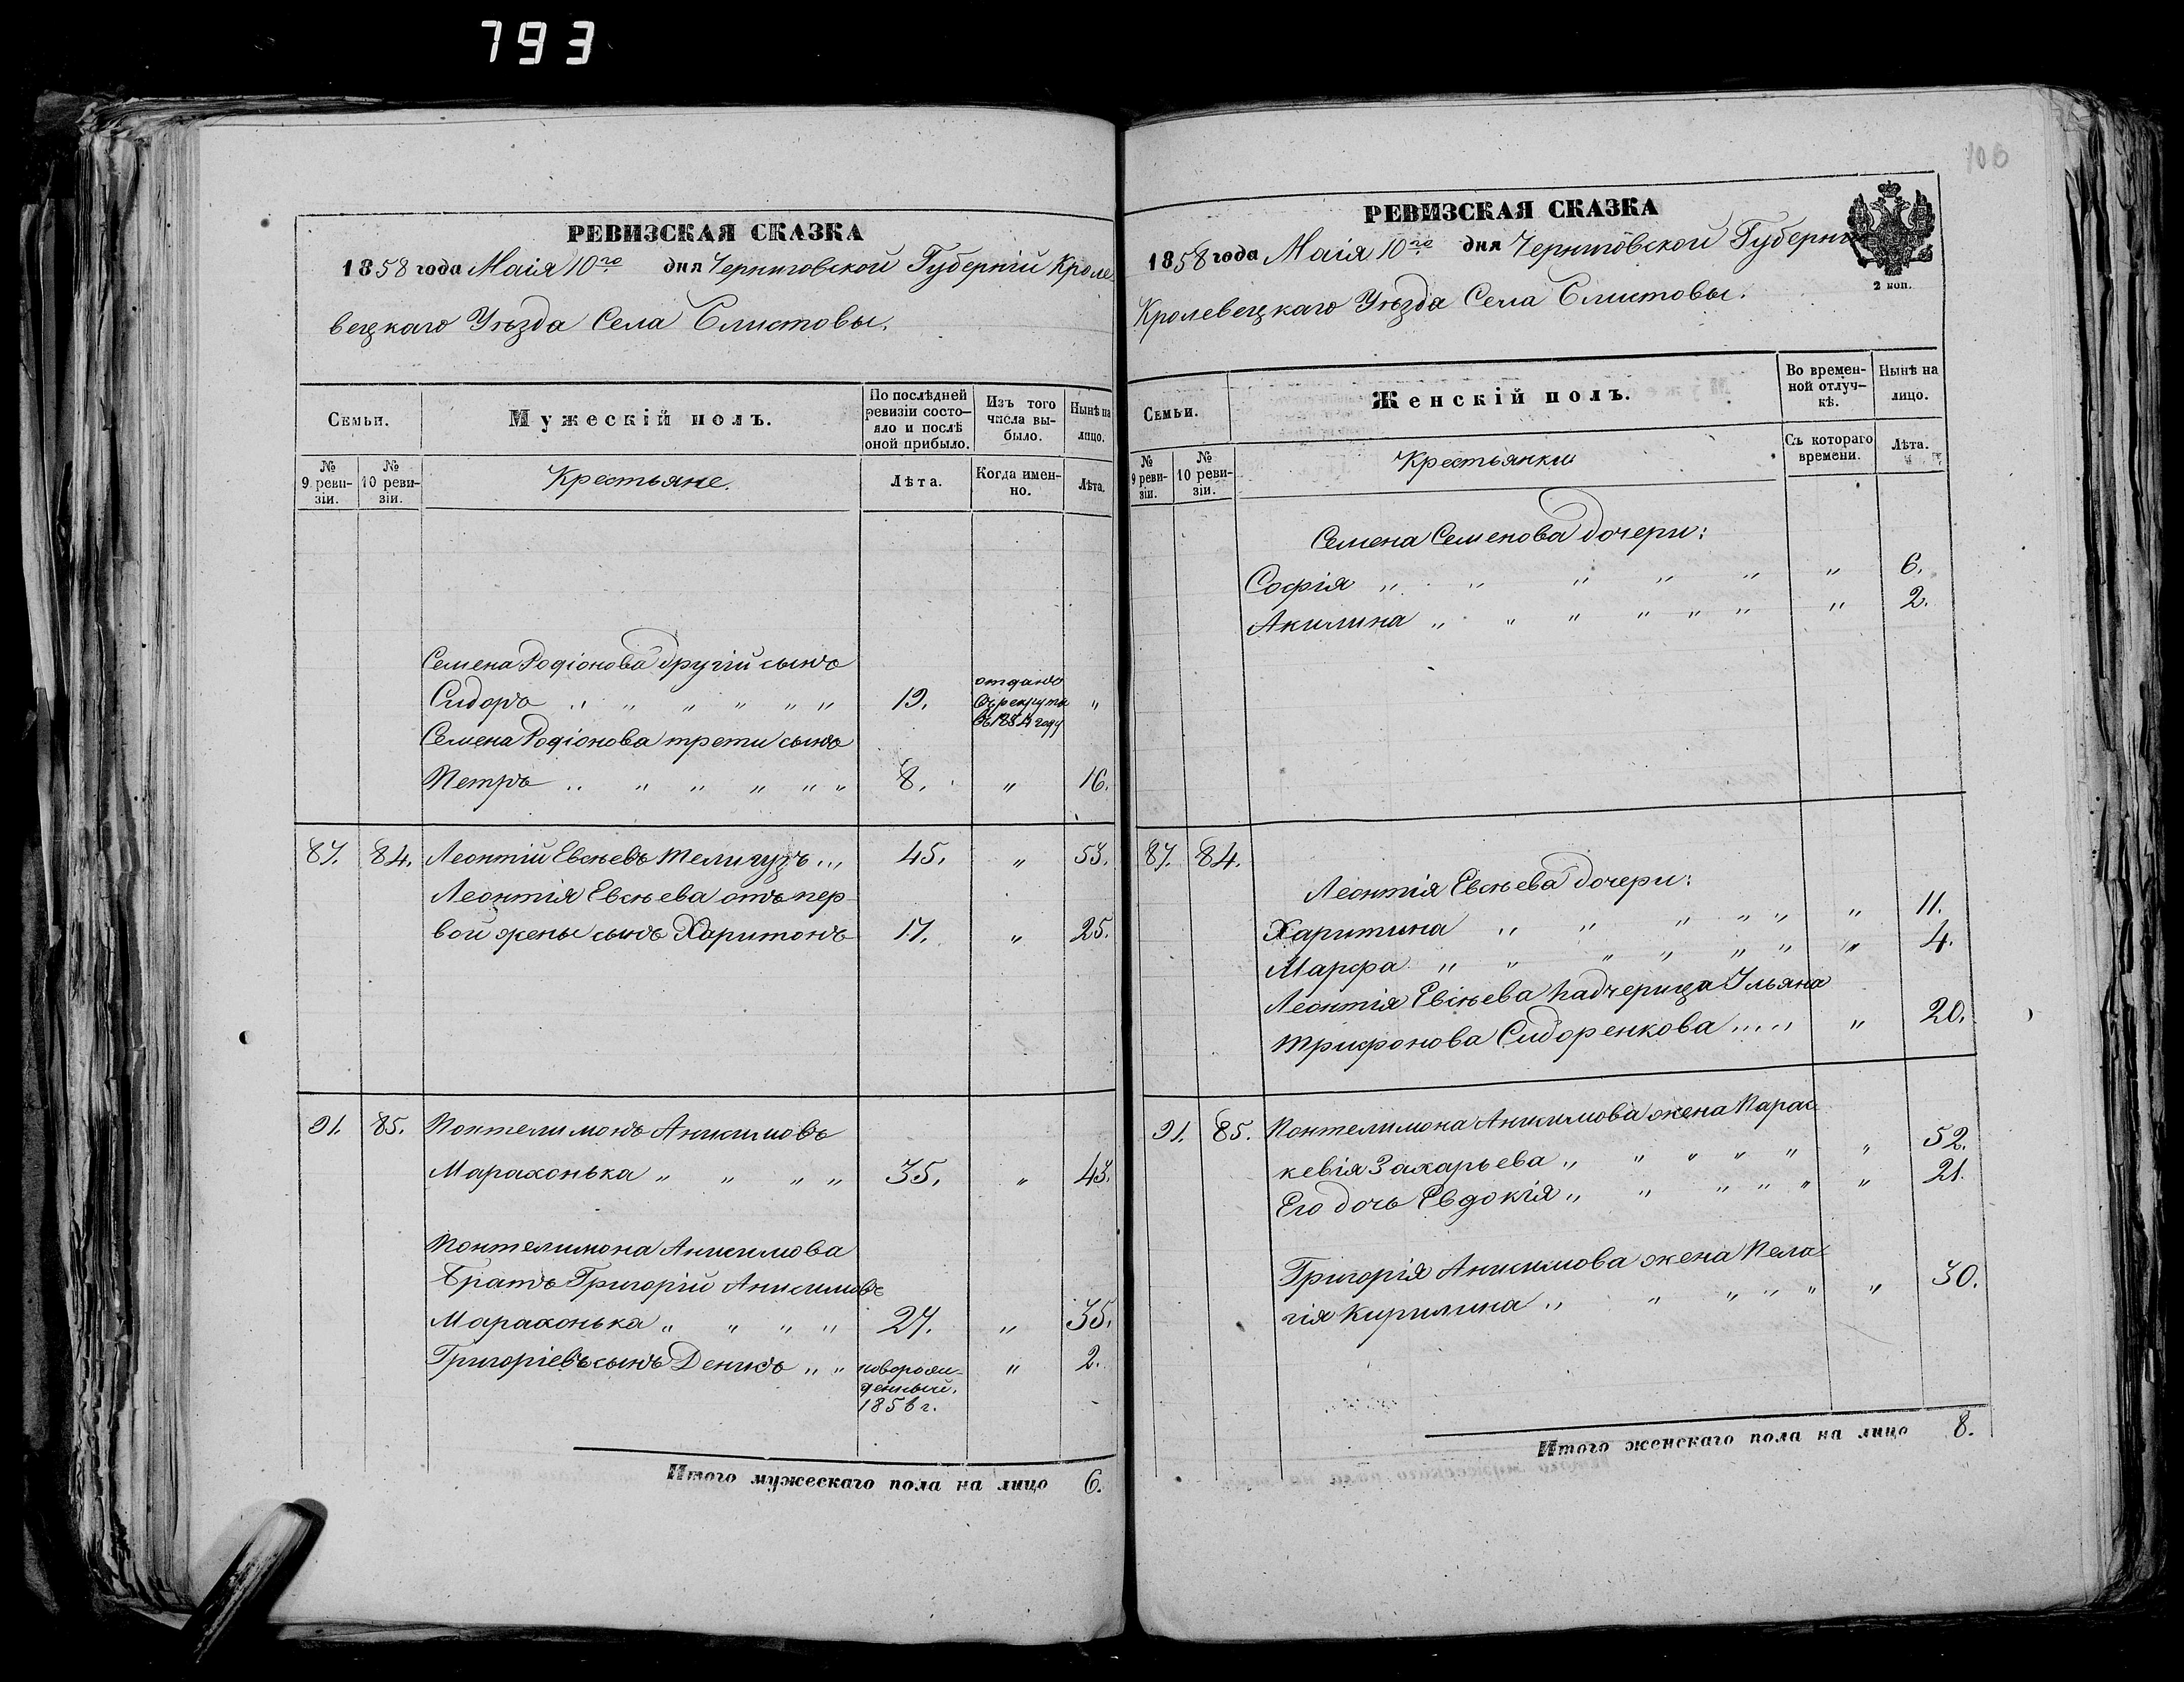 793
РЕВИЗСКАЯ СКАЗКА
1858 года Маія 10го дня Черниговской Губерніи Кроле
вецкаго Уѣзда Села Слистовы.
Семьи.
Мужескій полъ.
По послѣдней ревизіи состояло и послѣ оной прибыло.
Изъ того числа выбыло.
Нынѣ на лицо.
№ 9 ревизіи.
№ 10 ревизіи.
Крестьяне.
Лѣта.
Когда именно.
Лѣта.
Семена Родіонова другій сынъ
Сидоръ „ „ „ „ „ „ 19. отданъ въ рекруты въ 1854 году „
Семена Родіонова трети сынъ
Петръ „ „ „ „ „ „ 8. „ 16.
87. 84. Леонтій Евсѣевъ Телигузъ „ 45. „ 53.
Леонтія Евсѣева отъ пер
вой жены сынъ Харитонъ 17. „ 25.
91. 85. Понтелимонъ Анисимовъ
Марахонька „ „ „ „ 35. „ 43.
Понтелимона Анисимова
Братъ Григорій Анисимовъ
Марахонька „ „ „ „ 27. „ 35.
Григоріевъ сынъ Денисъ „ „ новорожденный. 1856 г. „ 2.
Итого мужескаго пола на лицо 6.
106
РЕВИЗСКАЯ СКАЗКА
2 коп.
1858 года Маія 10го дня Черниговской Губерніи
Кролевецкаго Уѣзда Села Слистовы.
Семьи.
Женскій полъ.
Во временной отлучкѣ.
Нынѣ на лицо.
№ 9 ревизіи.
№ 10 ревизіи.
Крестьянки
Съ котораго времени.
Лѣта.
Семена Семенова дочери:
Софія „ „ „ „ „ „ 6.
Акилина „ „ „ „ „ „ „ 2.
87. 84.
Леонтія Евсѣева дочери:
Харитина „ „ „ „ „ „ 11.
Марфа „ „ „ „ „ „ „ 4.
Леонтія Евсѣева падчерица Ульяна
Трифонова Сидоренкова „ „ „ 20.
91. 85. Понтелимона Анисимова жена Парас
кевія Захарьева „ „ „ „ „ „ 52.
Его дочь Евдокія „ „ „ „ „ „ 21.
Григорія Анисимова жена Пела
гія Кирилина „ „ „ „ „ „ 30.
Итого женскаго пола на лицо 8.